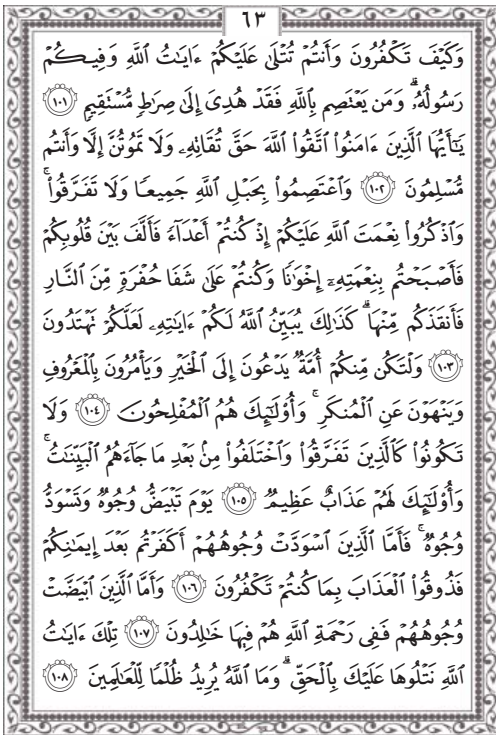 ٦٣
وَكَيۡفَ تَكۡفُرُونَ وَأَنتُمۡ تُتۡلَىٰ عَلَيۡكُمۡ ءَايَٰتُ ٱللَّهِ وَفِيكُمۡ
رَسُولُهُۥۗ وَمَن يَعۡتَصِم بِٱللَّهِ فَقَدۡ هُدِيَ إِلَىٰ صِرَٰطٖ مُّسۡتَقِيمٖ ١٠١
يَٰٓأَيُّهَا ٱلَّذِينَ ءَامَنُواْ ٱتَّقُواْ ٱللَّهَ حَقَّ تُقَاتِهِۦ وَلَا تَمُوتُنَّ إِلَّا وَأَنتُم
مُّسۡلِمُونَ ١٠٢ وَٱعۡتَصِمُواْ بِحَبۡلِ ٱللَّهِ جَمِيعٗا وَلَا تَفَرَّقُواْۚ
وَٱذۡكُرُواْ نِعۡمَتَ ٱللَّهِ عَلَيۡكُمۡ إِذۡ كُنتُمۡ أَعۡدَآءٗ فَأَلَّفَ بَيۡنَ قُلُوبِكُمۡ
فَأَصۡبَحۡتُم بِنِعۡمَتِهِۦٓ إِخۡوَٰنٗا وَكُنتُمۡ عَلَىٰ شَفَا حُفۡرَةٖ مِّنَ ٱلنَّارِ
فَأَنقَذَكُم مِّنۡهَاۗ كَذَٰلِكَ يُبَيِّنُ ٱللَّهُ لَكُمۡ ءَايَٰتِهِۦ لَعَلَّكُمۡ تَهۡتَدُونَ
١٠٣ وَلۡتَكُن مِّنكُمۡ أُمَّةٞ يَدۡعُونَ إِلَى ٱلۡخَيۡرِ وَيَأۡمُرُونَ بِٱلۡمَعۡرُوفِ
وَيَنۡهَوۡنَ عَنِ ٱلۡمُنكَرِۚ وَأُوْلَٰٓئِكَ هُمُ ٱلۡمُفۡلِحُونَ ١٠٤ وَلَا
تَكُونُواْ كَٱلَّذِينَ تَفَرَّقُواْ وَٱخۡتَلَفُواْ مِنۢ بَعۡدِ مَا جَآءَهُمُ ٱلۡبَيِّنَٰتُۚ
وَأُوْلَٰٓئِكَ لَهُمۡ عَذَابٌ عَظِيمٞ ١٠٥ يَوۡمَ تَبۡيَضُّ وُجُوهٞ وَتَسۡوَدُّ
وُجُوهٞۚ فَأَمَّا ٱلَّذِينَ ٱسۡوَدَّتۡ وُجُوهُهُمۡ أَكَفَرۡتُم بَعۡدَ إِيمَٰنِكُمۡ
فَذُوقُواْ ٱلۡعَذَابَ بِمَا كُنتُمۡ تَكۡفُرُونَ ١٠٦ وَأَمَّا ٱلَّذِينَ ٱبۡيَضَّتۡ
وُجُوهُهُمۡ فَفِي رَحۡمَةِ ٱللَّهِ هُمۡ فِيهَا خَٰلِدُونَ ١٠٧ تِلۡكَ ءَايَٰتُ
ٱللَّهِ نَتۡلُوهَا عَلَيۡكَ بِٱلۡحَقِّۗ وَمَا ٱللَّهُ يُرِيدُ ظُلۡمٗا لِّلۡعَٰلَمِينَ ١٠٨